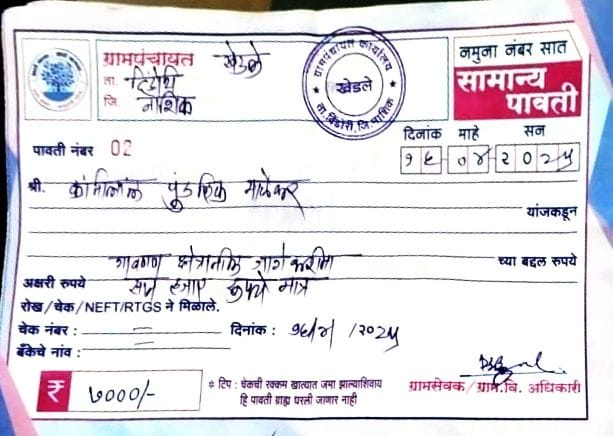 ग्रामपंचायत खेडले
नमुना नंबर सात
ता. दिंडोरी
जि. नाशिक
सामान्य
पावती
ग्रामपंचायत कार्यालय
खेडले
ता. दिंडोरी, जि. नाशिक
दिनांक माहे सन
पावती नंबर 02
१६ ०४ २०२५
श्री. पुंडलिक
यांजकडून
गावठाण जागे करीता
च्या बद्दल रुपये
अक्षरी रुपये सात हजार रुपये मात्र
रोख/चेक/NEFT/RTGS ने मिळाले.
चेक नंबर : दिनांक : १६/४/२०२५
बँकेचे नांव :
₹ ७०००/-
* टिप : चेकची रक्कम खात्यात जमा झाल्याशिवाय
हि पावती ग्राह्य धरली जाणार नाही
ग्रामसेवक/ग्राम.वि. अधिकारी